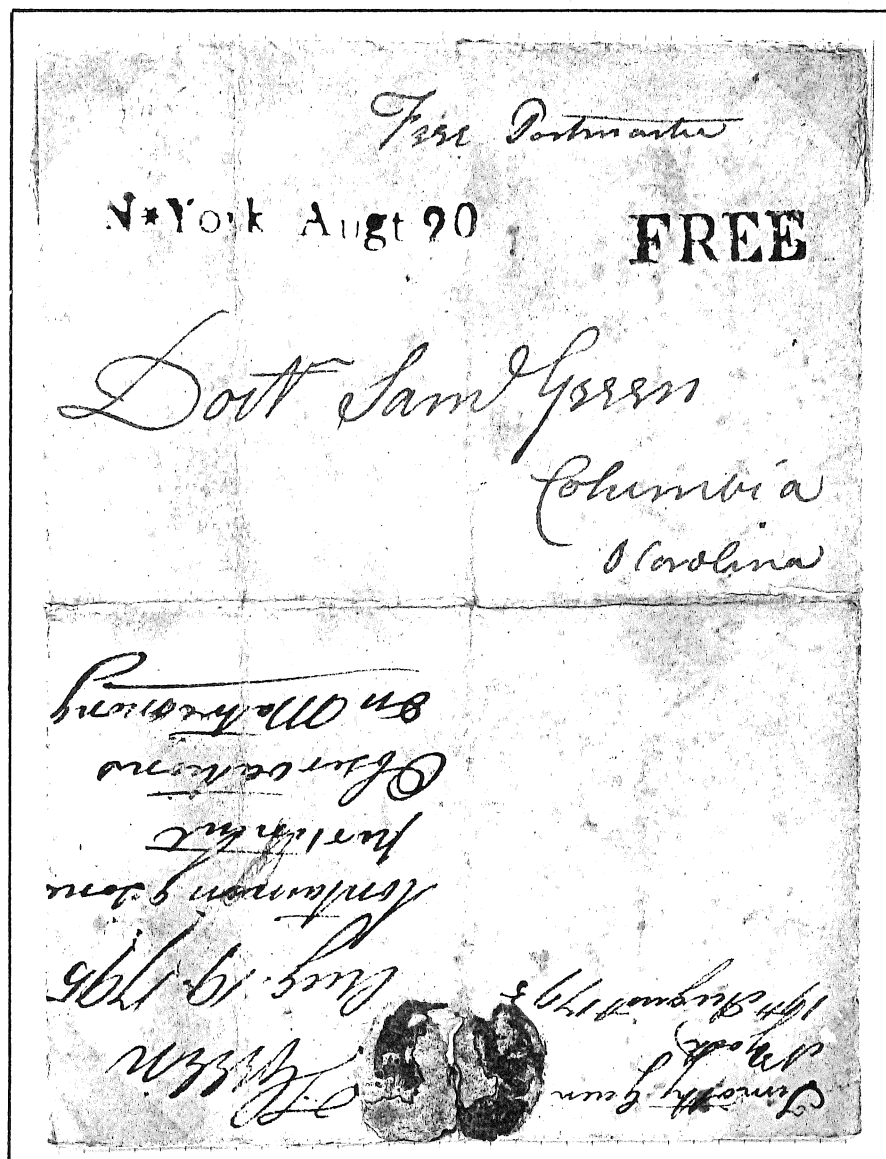 Free Postmaster
N*York Augt 20 FREE
Doctr Saml Green
Columbia
S Carolina
T Green
Aug. 19. 1795
Containing some
pertinent
Observations
on Matrimony
Timothy Green
N York
19th August 1795